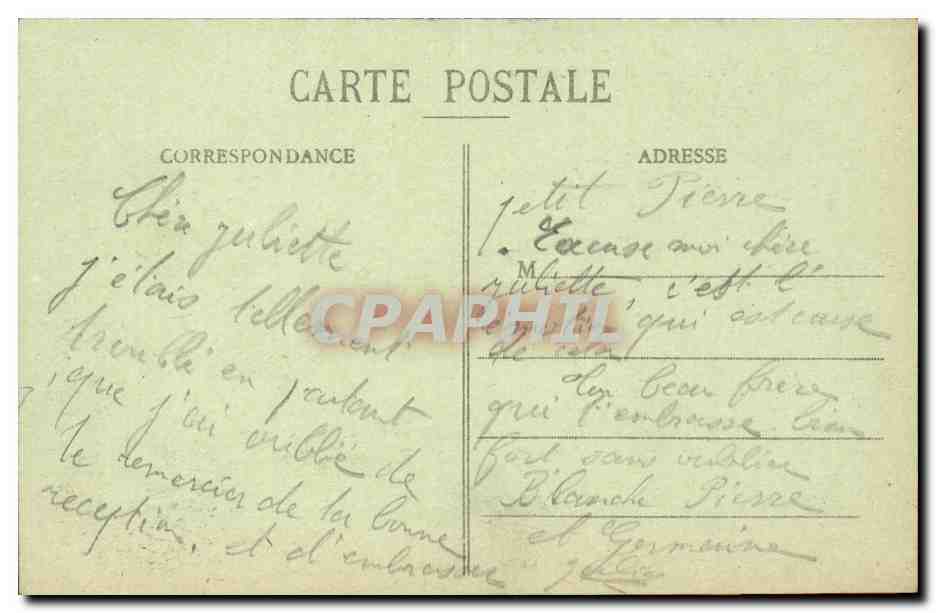 CARTE POSTALE
CORRESPONDANCE
Chère Juliette
j'étais tellement
troublé en partant
que j'ai oublié de
te remercier de la bonne
reception, et d'embrasser
ADRESSE
petit Pierre
Excuse moi chère
M
Juliette, c'est l'
émotion qui est cause
de cela
Ton beau frère
qui t'embrasse bien
fort sans oublier
Blanche Pierre
et Germaine
CPAPHIL